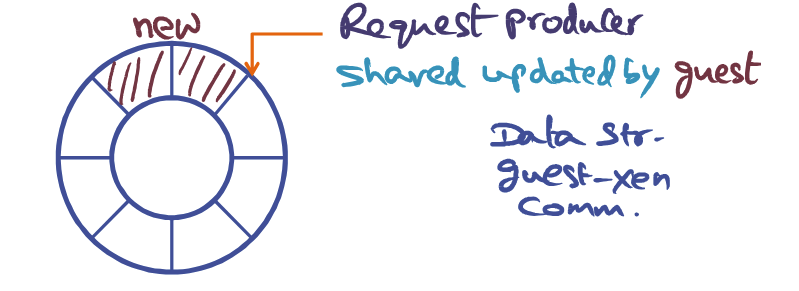 new
Request producer
shared updated by guest
Data Str.
guest-xen
Comm.